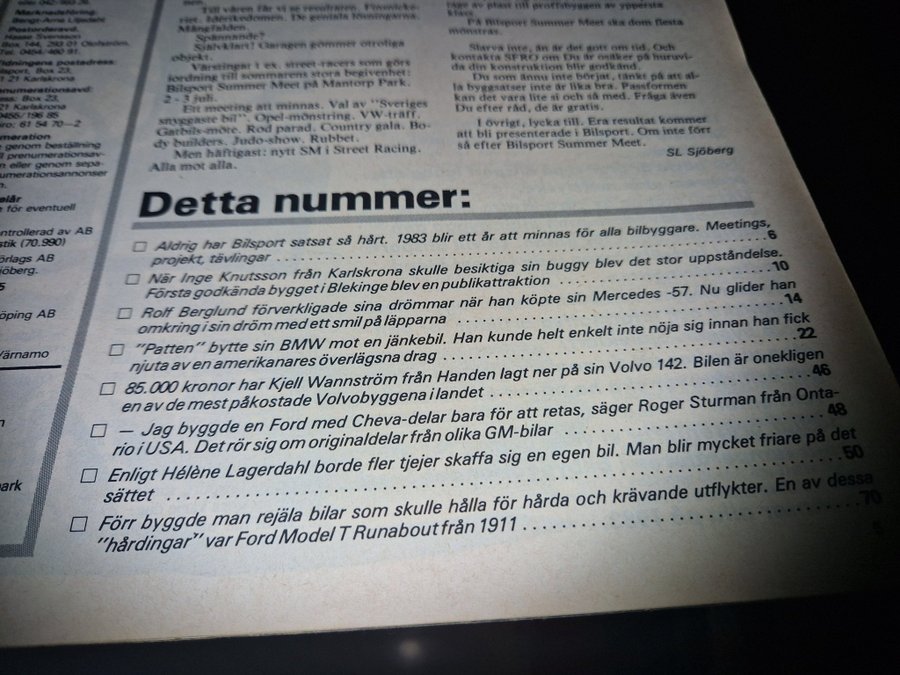 Marknadsföring:
Bengt-Arne Liljedahl
Postorderavd.
Hasse Svensson
Box 144, 293 01 Olofström,
Tel. 0454/460 91.
Tidningens postadress:
Bilsport, Box 23,
1 21 Karlskrona
enumerationsavd:
ess: Box 23,
21 Karlskrona
0455/196 85
iro: 61 54 70—2
meration
genom beställning
ll prenumerationsav-
n eller genom sepa-
umerationsannonser
n.
elår
för eventuell
ntrollerad av AB
stik (70.990)
örlags AB
jöberg.
5
öping AB
Värnamo
n
park
men.
Till våren får vi se resultaten. Finessrike-
Idérikedomen. De geniala lösningarna.
Mångfalden.
Spännande?
Självklart! Garagen gömmer otroliga
objekt.
Värstingar t ex. street-racers som görs
jordning till sommarens stora begivenhet:
Bilsport Summer Meet på Mantorp Park.
2 - 3 juli.
Ett meeting att minnas. Val av "Sveriges
snyggaste bil". Opel-mönstring. VW-träff.
Gatbils-möte. Rod parad. Country gala. Bo-
dy builders. Judo-show. Rubbet.
Men häftigast: nytt SM i Street Racing.
Alla mot alla.
av plast till proffsbyggen av yppersta
klass.
På Bilsport Summer Meet ska dom flesta
mönstras.
Slarva inte, än är det gott om tid. Och
kontakta SFRO om Du är osäker på huruvi-
da din konstruktion blir godkänd.
Du som ännu inte börjat, tänks på att al-
la byggsatser inte är lika bra. Passformen
kan det vara lite si och så med. Fråga även
Du efter råd, de är gratis.
I övrigt, lycka till. Era resultat kommer
att bli presenterade i Bilsport. Om inte förr
så efter Bilsport Summer Meet.
SL Sjöberg
Detta nummer:
□ Aldrig har Bilsport satsat så hårt. 1983 blir ett år att minnas för alla bilbyggare. Meetings,
projekt, tävlingar . . . . . . . . . . 6
□ När Inge Knutsson från Karlskrona skulle besiktiga sin buggy blev det stor uppståndelse.
Första godkända bygget i Blekinge blev en publikattraktion . . . . . . . . . . 10
□ Rolf Berglund förverkligade sina drömmar när han köpte sin Mercedes -57. Nu glider han
omkring i sin dröm med ett smil på läpparna . . . . . . . . . . 14
□ "Patten" bytte sin BMW mot en jänkebil. Han kunde helt enkelt inte nöja sig innan han fick
njuta av en amerikanares överlägsna drag . . . . . . . . . . 22
□ 85.000 kronor har Kjell Wannström från Handen lagt ner på sin Volvo 142. Bilen är onekligen
en av de mest påkostade Volvobyggena i landet . . . . . . . . . . 46
□ — Jag byggde en Ford med Cheva-delar bara för att retas, säger Roger Sturman från Onta-
rio i USA. Det rör sig om originaldelar från olika GM-bilar . . . . . . . . . . 48
□ Enligt Héléne Lagerdahl borde fler tjejer skaffa sig en egen bil. Man blir mycket friare på det
sättet . . . . . . . . . . 50
□ Förr byggde man rejäla bilar som skulle hålla för hårda och krävande utflykter. En av dessa
"hårdingar" var Ford Model T Runabout från 1911 . . . . . . . . . . 70